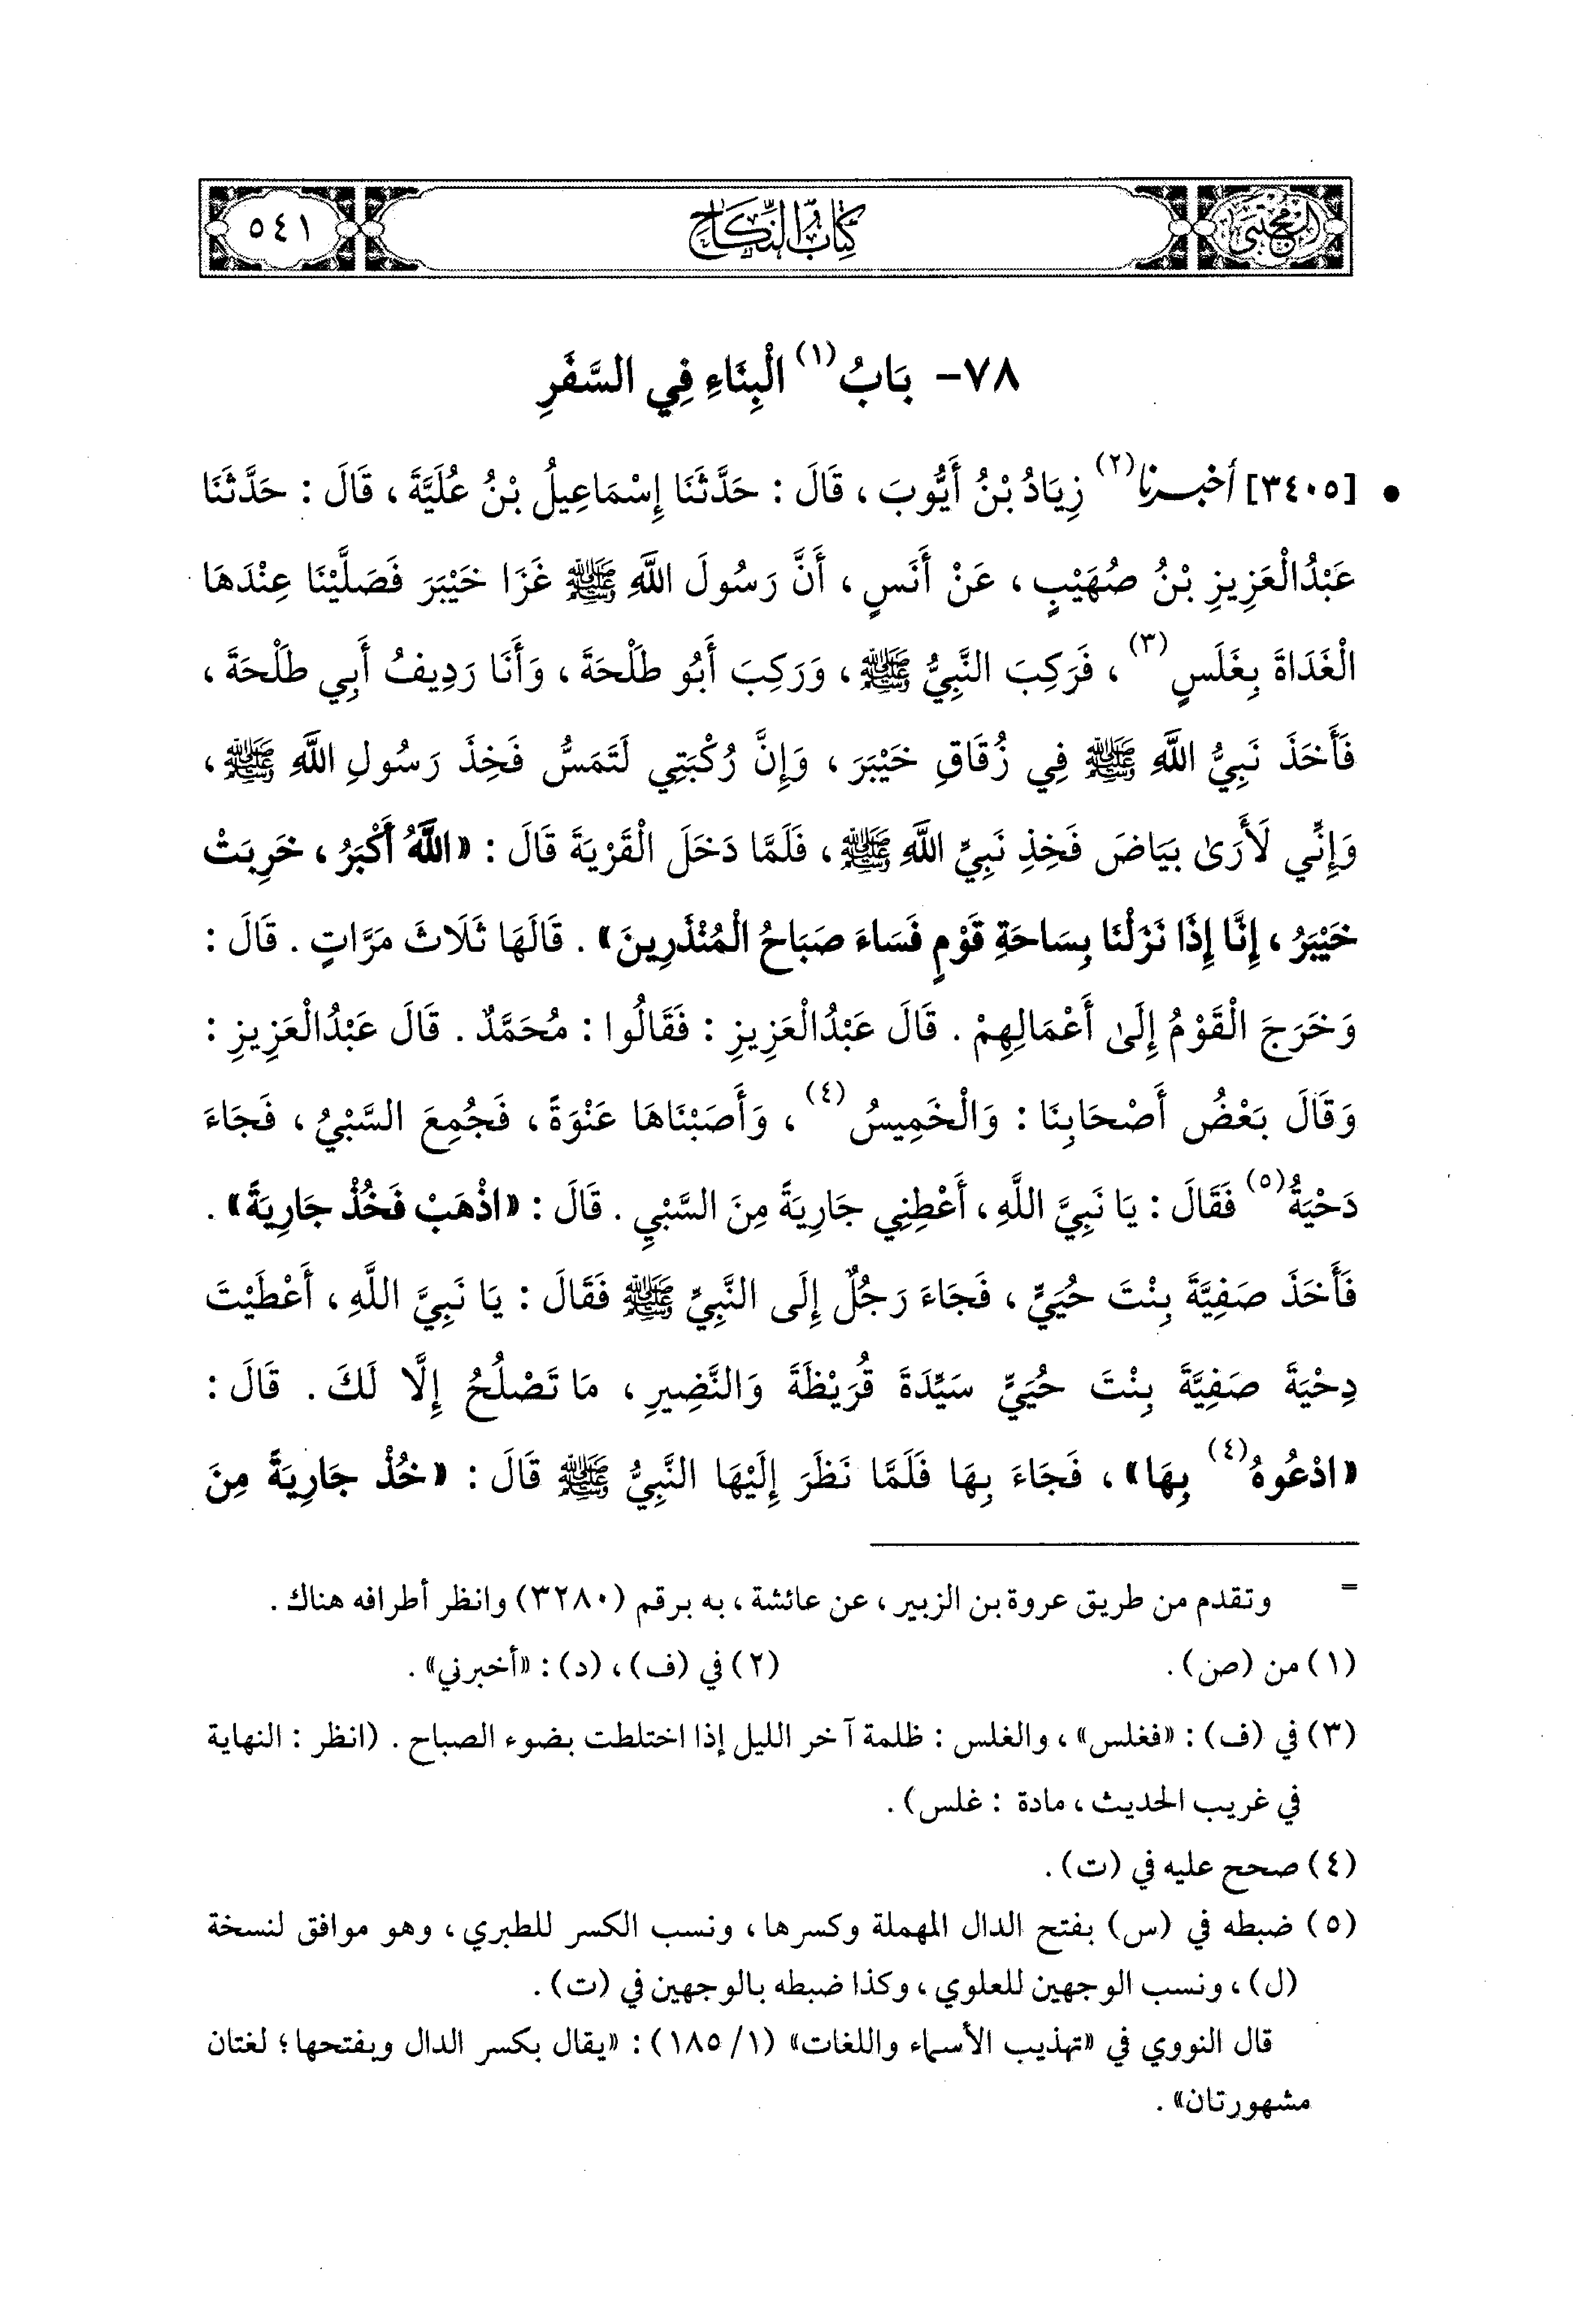 المجتبى
كتاب النكاح
٥٤١
٧٨- بَابُ(١) الْبِنَاءِ فِي السَّفَرِ
• [٣٤٠٥] أخبرنا(٢) زِيَادُ بْنُ أَيُّوبَ ، قَالَ : حَدَّثَنَا إِسْمَاعِيلُ بْنُ عُلَيَّةَ ، قَالَ : حَدَّثَنَا
عَبْدُالْعَزِيزِ بْنُ صُهَيْبٍ ، عَنْ أَنَسٍ ، أَنَّ رَسُولَ اللَّهِ ﷺ غَزَا خَيْبَرَ فَصَلَّيْنَا عِنْدَهَا
الْغَدَاةَ بِغَلَسٍ(٣) ، فَرَكِبَ النَّبِيُّ ﷺ ، وَرَكِبَ أَبُو طَلْحَةَ ، وَأَنَا رَدِيفُ أَبِي طَلْحَةَ ،
فَأَخَذَ نَبِيُّ اللَّهِ ﷺ فِي زُقَاقِ خَيْبَرَ ، وَإِنَّ رُكْبَتِي لَتَمَسُّ فَخِذَ رَسُولِ اللَّهِ ﷺ ،
وَإِنِّي لَأَرَىٰ بَيَاضَ فَخِذِ نَبِيِّ اللَّهِ ﷺ ، فَلَمَّا دَخَلَ الْقَرْيَةَ قَالَ : «اللَّهُ أَكْبَرُ ، خَرِبَتْ
خَيْبَرُ ، إِنَّا إِذَا نَزَلْنَا بِسَاحَةِ قَوْمٍ فَسَاءَ صَبَاحُ الْمُنْذَرِينَ» . قَالَهَا ثَلَاثَ مَرَّاتٍ . قَالَ :
وَخَرَجَ الْقَوْمُ إِلَىٰ أَعْمَالِهِمْ . قَالَ عَبْدُالْعَزِيزِ : فَقَالُوا : مُحَمَّدٌ . قَالَ عَبْدُالْعَزِيزِ :
وَقَالَ بَعْضُ أَصْحَابِنَا : وَالْخَمِيسُ(٤) ، وَأَصَبْنَاهَا عَنْوَةً ، فَجُمِعَ السَّبْيُ ، فَجَاءَ
دَحْيَةُ(٥) فَقَالَ : يَا نَبِيَّ اللَّهِ ، أَعْطِنِي جَارِيَةً مِنَ السَّبْيِ . قَالَ : «اذْهَبْ فَخُذْ جَارِيَةً» .
فَأَخَذَ صَفِيَّةَ بِنْتَ حُيَيٍّ ، فَجَاءَ رَجُلٌ إِلَى النَّبِيِّ ﷺ فَقَالَ : يَا نَبِيَّ اللَّهِ ، أَعْطَيْتَ
دِحْيَةَ صَفِيَّةَ بِنْتَ حُيَيٍّ سَيِّدَةَ قُرَيْظَةَ وَالنَّضِيرِ ، مَا تَصْلُحُ إِلَّا لَكَ . قَالَ :
«ادْعُوهُ(٤) بِهَا» ، فَجَاءَ بِهَا فَلَمَّا نَظَرَ إِلَيْهَا النَّبِيُّ ﷺ قَالَ : «خُذْ جَارِيَةً مِنَ
= وتقدم من طريق عروة بن الزبير ، عن عائشة ، به برقم (٣٢٨٠) وانظر أطرافه هناك .
(١) من (صن) . (٢) في (ف) ، (د) : «أخبرني» .
(٣) في (ف) : «فغلس» ، والغلس : ظلمة آخر الليل إذا اختلطت بضوء الصباح . (انظر : النهاية
في غريب الحديث ، مادة : غلس) .
(٤) صحح عليه في (ت) .
(٥) ضبطه في (س) بفتح الدال المهملة وكسرها ، ونسب الكسر للطبري ، وهو موافق لنسخة
(ل) ، ونسب الوجهين للعلوي ، وكذا ضبطه بالوجهين في (ت) .
قال النووي في «تهذيب الأسماء واللغات» (١/ ١٨٥) : «يقال بكسر الدال وبفتحها ؛ لغتان
مشهورتان» .